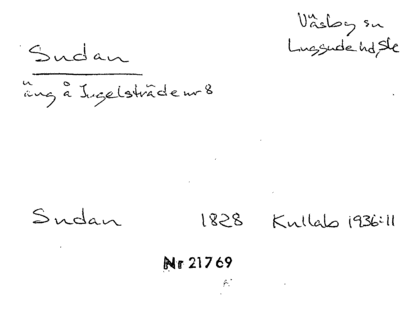 Väsby sn
Luggude hd, Sk
Sudan
äng å Ingelsträde nr 8
Sudan 1828 Kullabo 1936:11
Nr 21769